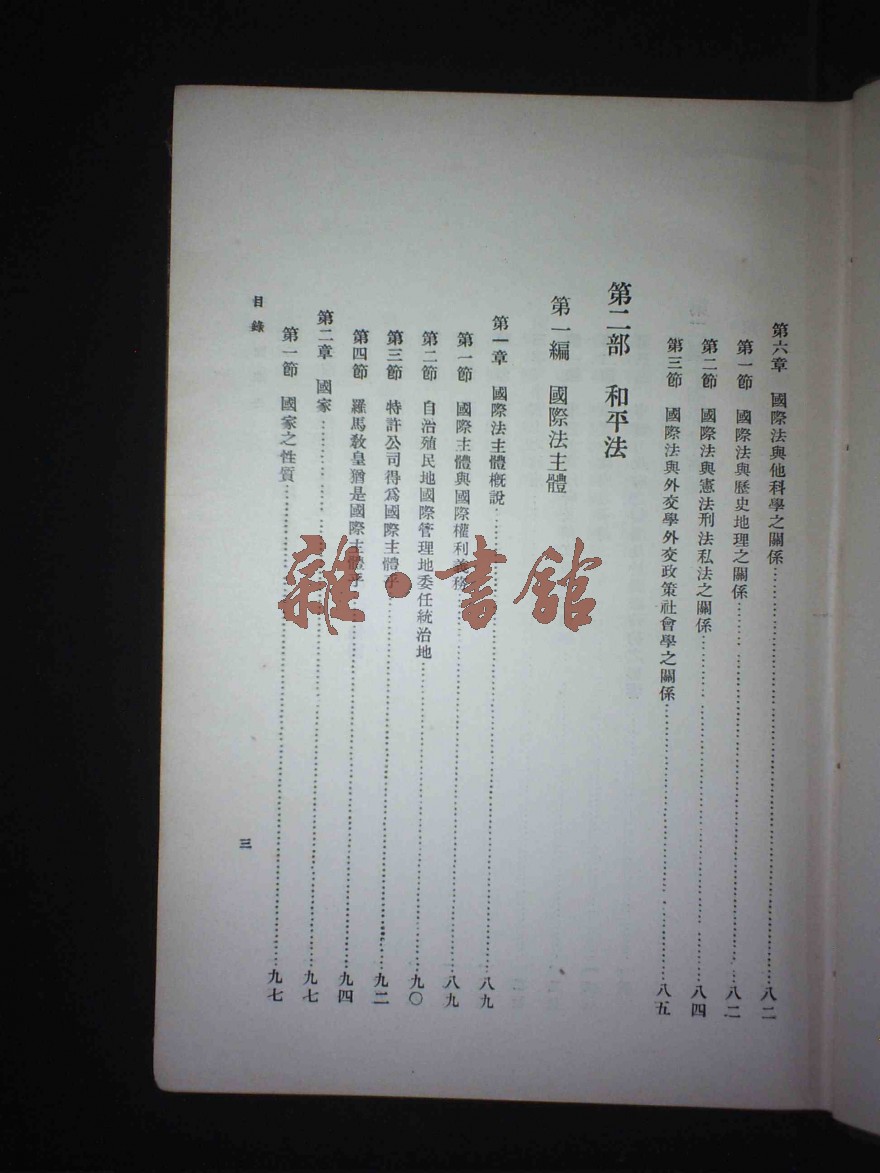 第六章　國際法與他科學之關係……八二
第一節　國際法與歷史地理之關係……八二
第二節　國際法與憲法刑法私法之關係……八四
第三節　國際法與外交學外交政策社會學之關係……八五
第二部　和平法
第一編　國際法主體
第一章　國際法主體槪說……八九
第一節　國際主體與國際權利義務……八九
第二節　自治殖民地國際管理地委任統治地……九〇
第三節　特許公司得爲國際主體乎……九二
第四節　羅馬敎皇猶是國際主體乎……九四
第二章　國家……九七
第一節　國家之性質……九七
目錄
三
雜·書館